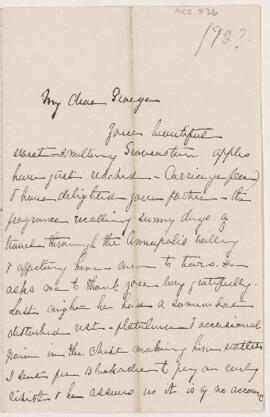 ACC 936
192?
My dear George
Your beautiful
sweet-smelling Gravenstein apples
have just reached - Carriage free)
& have delighted your father - the
fragrance recalling sunny days of
travel through the Annapolis Valley
& affecting him even to tears. He
asks me to thank you very gratefully.
Last night he had a somewhat
disturbed rest - flatulence & occasional
pain in the Chest making him restless
I sent for Blackader to pay an early
visit & he assures us it is of no account